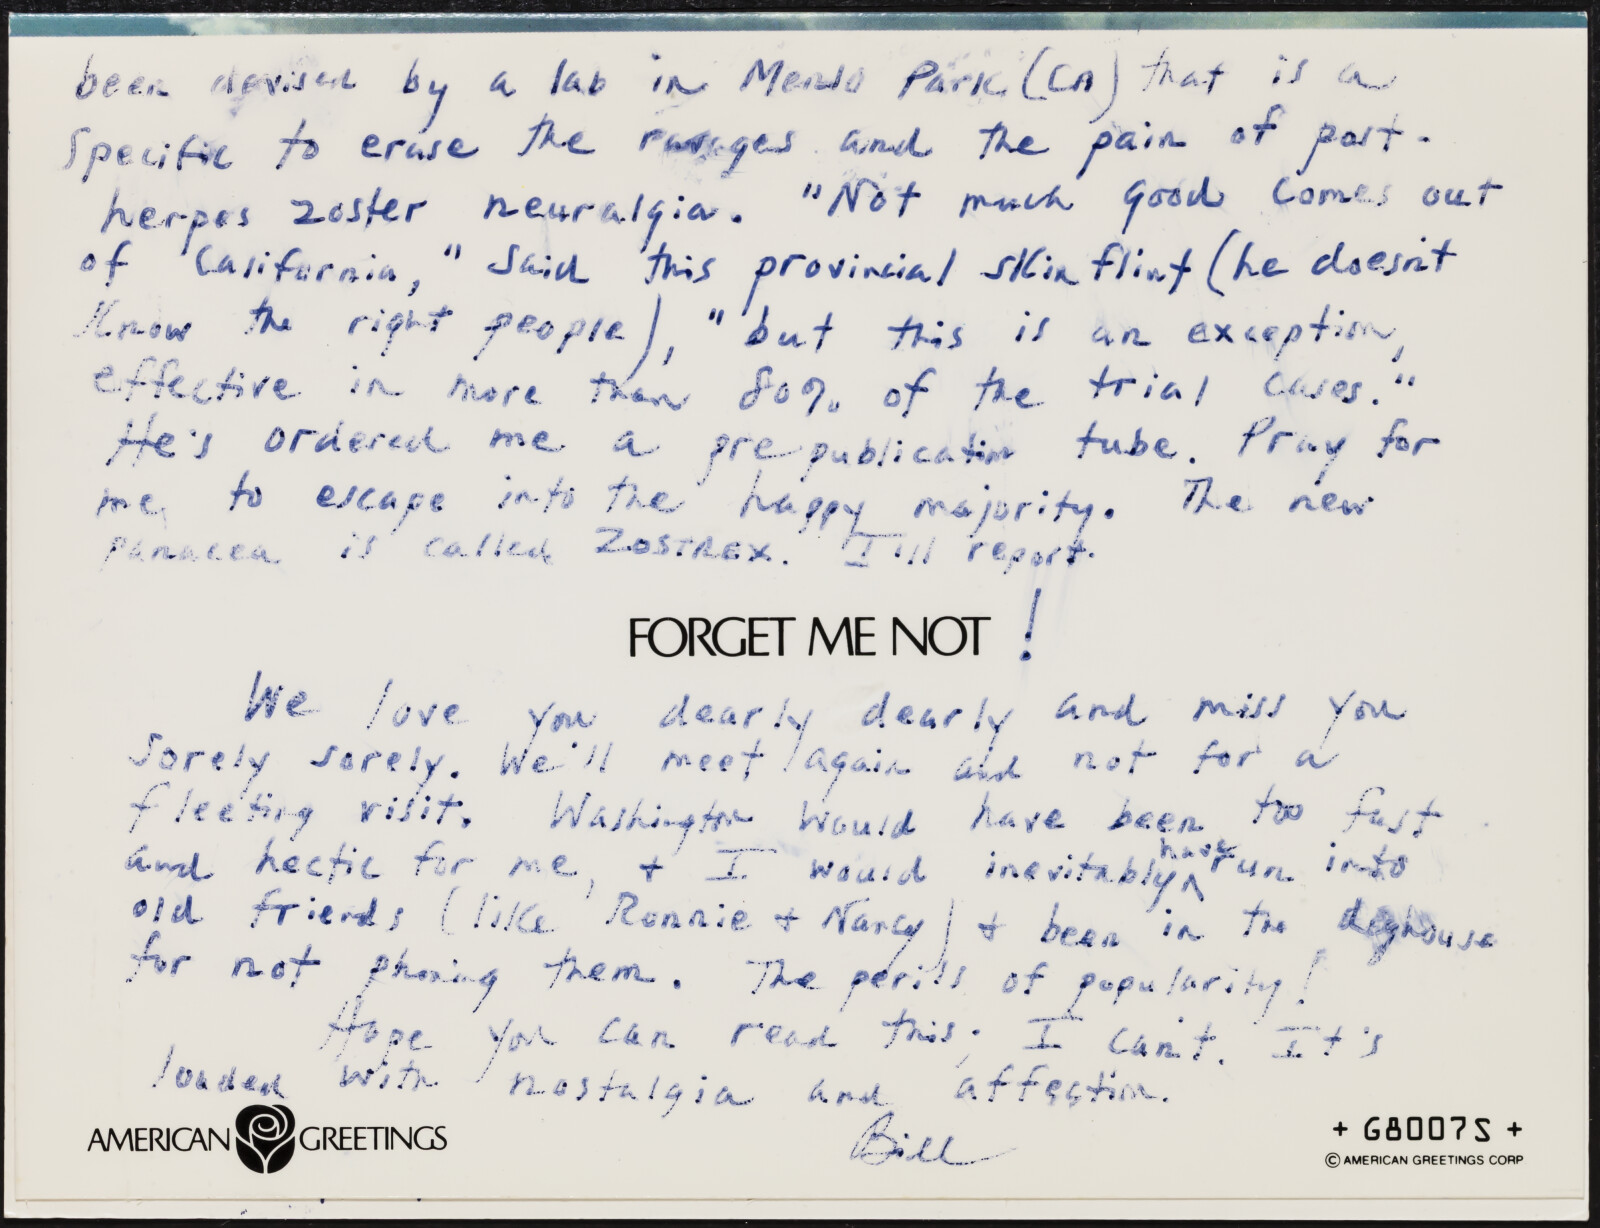 been devised by a lab in Menlo Park (CA) that is a
specific to erase the ravages and the pain of post-
herpes zoster neuralgia. "Not much good comes out
of California," said this provincial skinflint (he doesn't
know the right people), "but this is an exception,
effective in more than 80% of the trial cases."
He's ordered me a prepublication tube. Pray for
me to escape into the happy majority. The new
panacea is called ZOSTREX. I'll report.
FORGET ME NOT!
We love you dearly dearly and miss you
sorely sorely. We'll meet again and not for a
fleeting visit. Washington would have been too fast
and hectic for me, + I would inevitably have run into
old friends (like Ronnie + Nancy) + been in the doghouse
for not phoning them. The perils of popularity!
Hope you can read this; I can't. It's
loaded with nostalgia and affection.
Bill
AMERICAN GREETINGS
+ G8007S +
© AMERICAN GREETINGS CORP